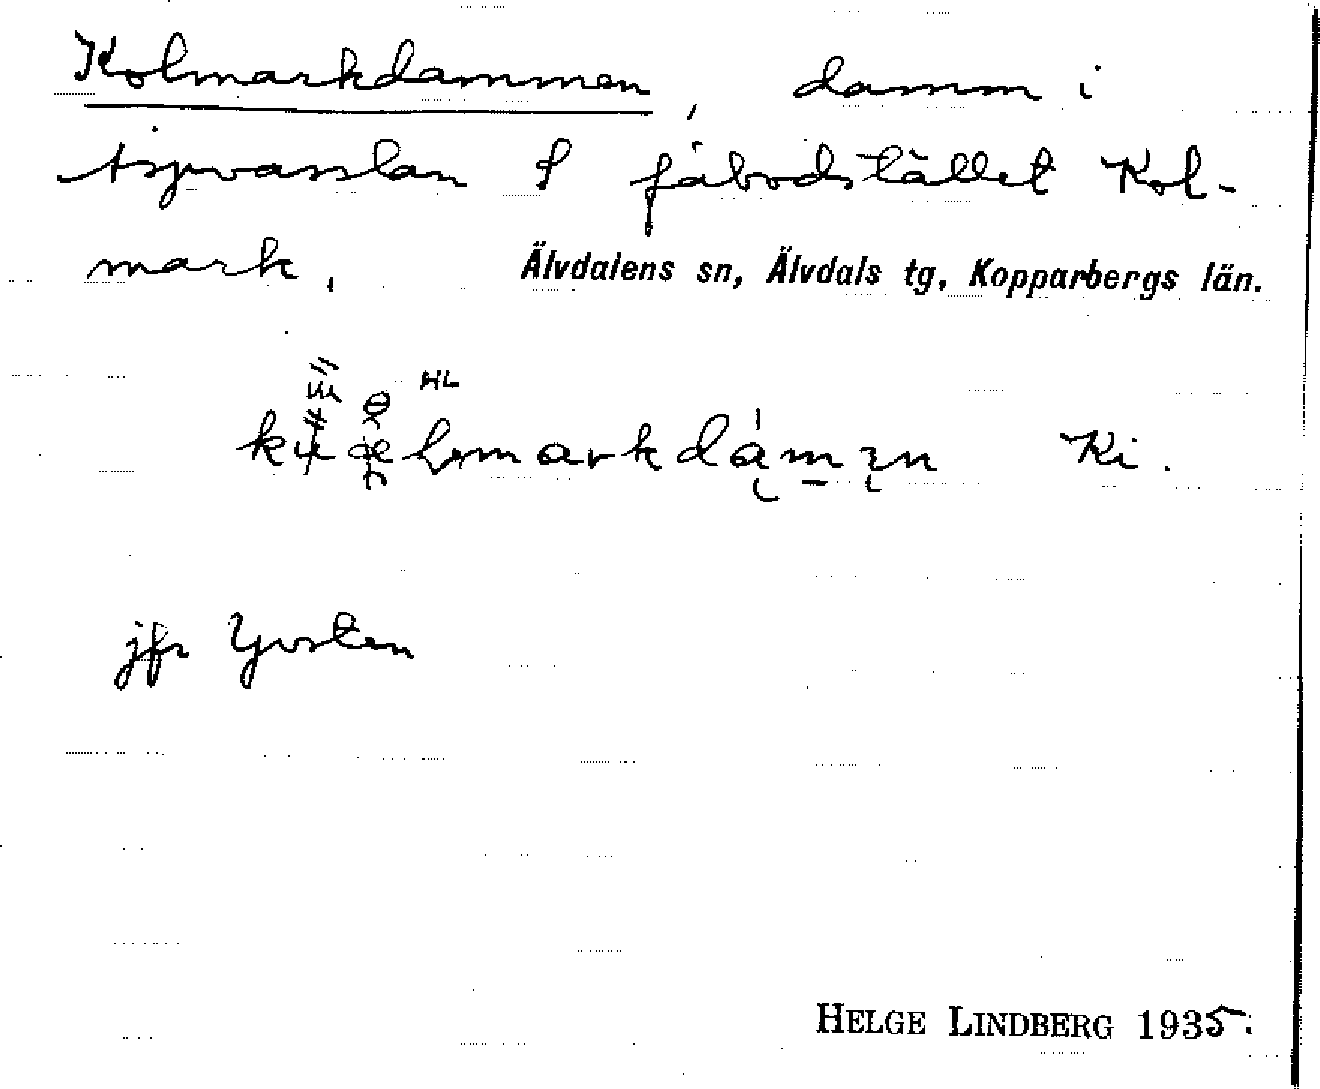 Kolmarkdammen, damm i
S fäbodstället Kol-
mark.
Älvdalens sn, Älvdals tg, Kopparbergs län.
HL
Ki.
jfr Yvsten
HELGE LINDBERG 1935.